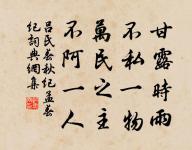 甘露時雨
不私一物
萬民之主
不阿一人
呂氏春秋紀孟春
紀詞典網集